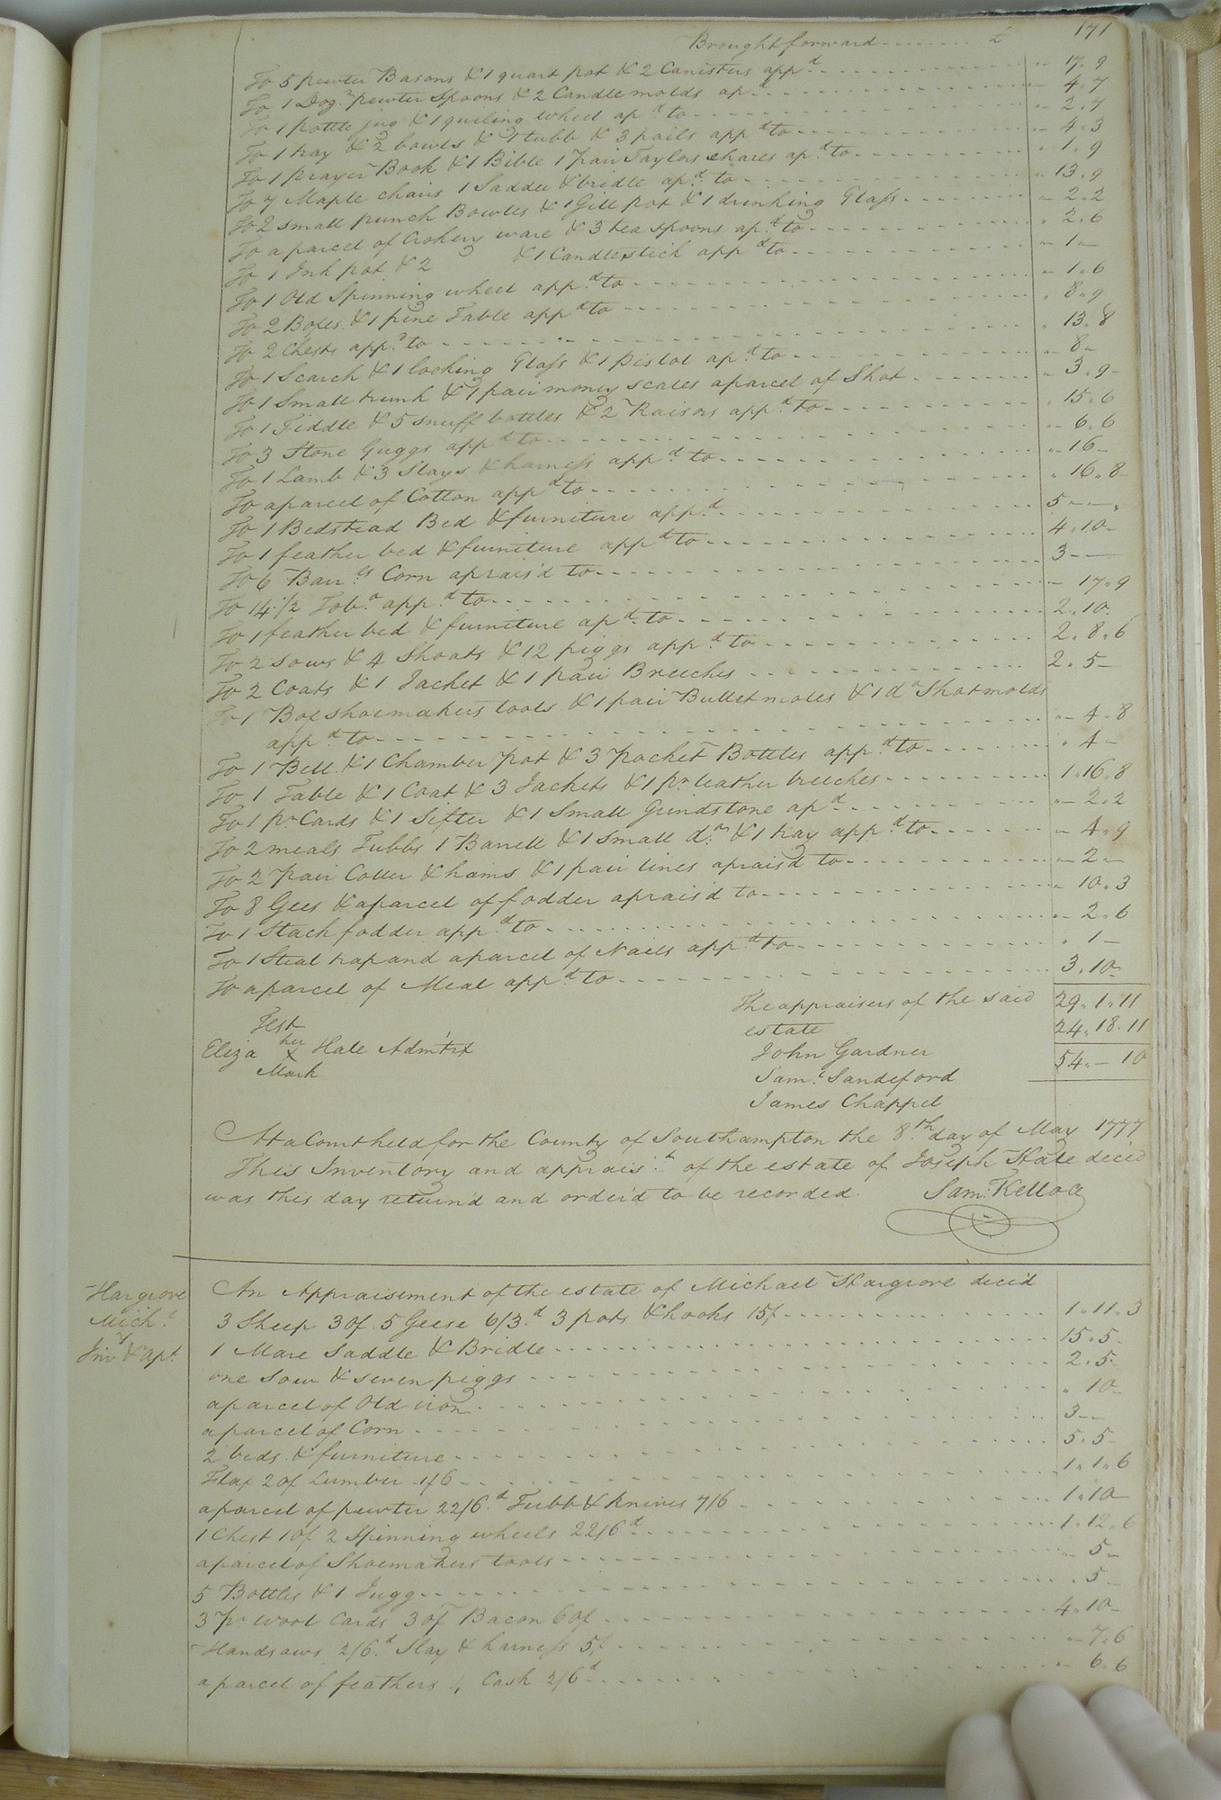 171
Brought forward £
To 5 pewter Basons & 1 quart pot & 2 Canisters app.d 17.9
To 1 Doz.n pewter Spoons & 2 Candle molds ap.d 4.7
To 1 pottle jug & 1 quiling wheel ap.d to 2.7
To 1 tray & 2 bowls & 1 tubb & 3 pails app.d to 4.3
To 1 prayer Book & 1 Bible 1 pair Taylors sheares ap.d to 1.9
To 7 Maple chairs 1 Saddle & bridle ap.d to 13.9
To 2 small punch Bowles & 1 Gill pot & 1 drinking Glass 2.2
To a parcel of Crokery ware & 3 tea spoons ap.d to 2.6
To 1 Ink pot & 2 & 1 Candlestick app.d to 1 —
To 1 Old Spinning wheel app.d to 1.6
To 2 Boxes & 1 pine Table app.d to 8.9
To 2 Chests app.d to 13.8
To 1 Scarch & 1 looking Glass & 1 pistol ap.d to 8 —
To 1 Small trunk & 1 pair money scales a parcel of Shot 3.9
To 1 Fiddle & 5 snuff bottles & 2 Raisors app.d to 15.6
To 3 Stone Juggs app.d to 6.6
To 1 Lamb & 3 Slays & harness app.d to 16 —
To a parcel of Cotton app.d to 16.8
To 1 Bedstead Bed & furniture app.d 5 — —
To 1 feather bed & furniture app.d to 4.10 —
To 6 Barr.ls Corn aprais'd to 3 — —
To 14 1/2 Tob.o app.d to 17.9
To 1 feather bed & furniture ap.d to 2.10
To 2 Sows & 4 Shoats & 12 piggs app.d to 2.8.6
To 2 Coats & 1 Jacket & 1 pair Breeches 2.5 —
To 1 Box shoemakers tools & 1 pair Bullet moles & 1 d.o Shot molds
app.d to 4.8
To 1 Bell & 1 Chamber pot & 3 pocket Bottles app.d to 4 —
To 1 Table & 1 Coat & 3 Jackets & 1 pr leather breeches 1.16.8
To 1 pr Cards & 1 Sifter & 1 Small Grindstone ap.d 2.2
To 2 meals Tubbs 1 Barrell & 1 small d.o & 1 tray app.d to 4.9
To 2 pair Coller & hams & 1 pair lines aprais'd to 2 —
To 8 Gees & a parcel of fodder aprais'd to 10.3
To 1 Stack fodder app.d to 2.6
To 1 Steal trap and a parcel of Nails app.d to 1 —
To a parcel of Meal app.d to 3.10
Test The appraisers of the said 29.1.11
her estate 24.18.11
Eliza X Hale Admtrx John Gardner 54. — 10
Mark Sam.l Sandeford
James Chappel
At a Court held for the County of Southampton the 8.th day of May 1777
This Inventory and apprais.t of the estate of Joseph Hale dece'd
was this day return'd and order'd to be recorded Sam: Kello CC
Hargrove
Mich.l
Inv.y & apt.
An Appraisement of the estate of Michael Hargrove dece'd
3 Sheep 30/ 5 Geese 6/3.d 3 pots & hooks 15/ 1.11.3
1 Mare Saddle & Bridle 15.5
one Sow & seven piggs 2.5
a parcel of Old iron 10
a parcel of Corn 3 —
2 beds & furniture 5.5
Flax 20/ Lumber 1/6 1.1.6
a parcel of pewter 22/6.d Tubb & knives 7/6 1.10
1 Chest 10/ 2 Spinning wheels 22/6.d 1.12.6
a parcel of Shoemakers tools 5 —
5 Bottles & 1 Jugg 5
3 pr Wool Cards 30/ Bacon 60/ 4.10 —
Handsaws 2/6.d Slay & harness 5/ 7.6
a parcel of feathers Cash 2/6.d 6.6